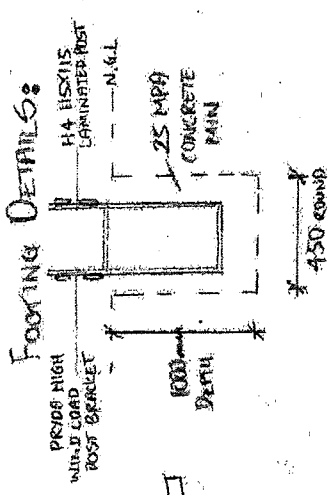 FOOTING DETAILS:
PRYDA HIGH
WIND LOAD
POST BRACKET
H4 115X115
LAMINATED POST
N.G.L
25 MPA
CONCRETE
MIN
1000mm
DEPTH
450 ROUND